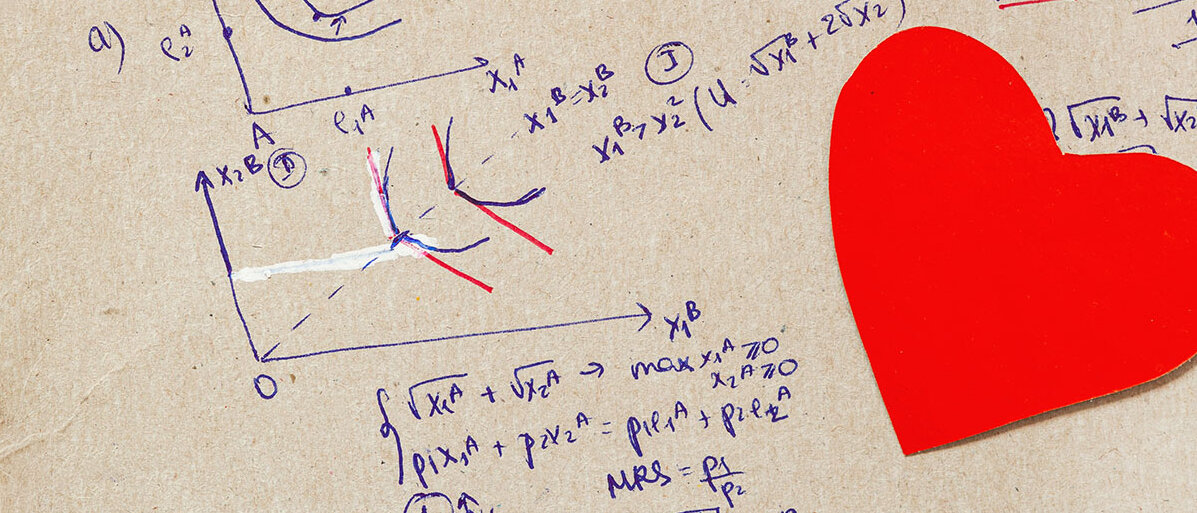 a)
e₂ᴬ
x₁ᴬ
e₁ᴬ
A
x₁ᴮ=x₂ᴮ
I
(U = √x₁ᴮ + 2√x₂)
√x₁ᴮ + √x₂
x₂B
x₁ᴮ
O
{ √x₁ᴬ + √x₂ᴬ → max x₁ᴬ ⩾ 0
x₂ᴬ ⩾ 0
p₁x₁ᴬ + p₂x₂ᴬ = p₁e₁ᴬ + p₂e₂ᴬ
MRS = p₁/p₂